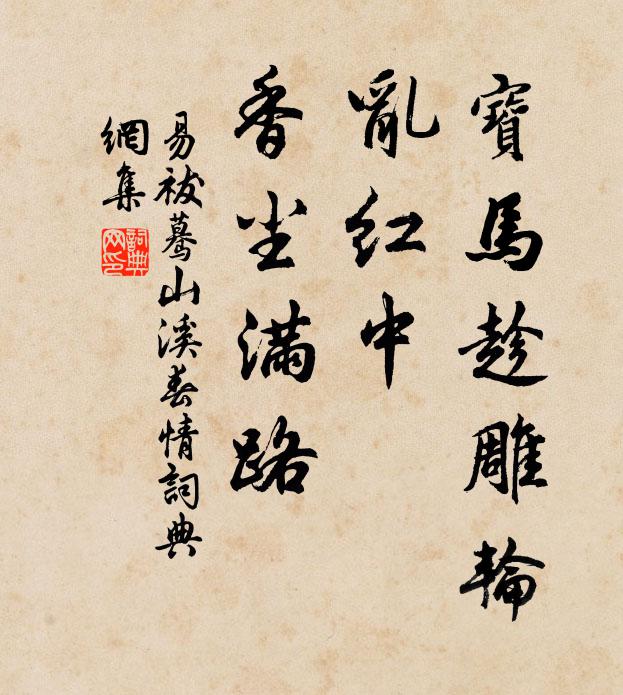 寶馬趁雕輪
亂紅中
香尘滿路
易祓驀山溪春情詞典
網集
詞典
网印